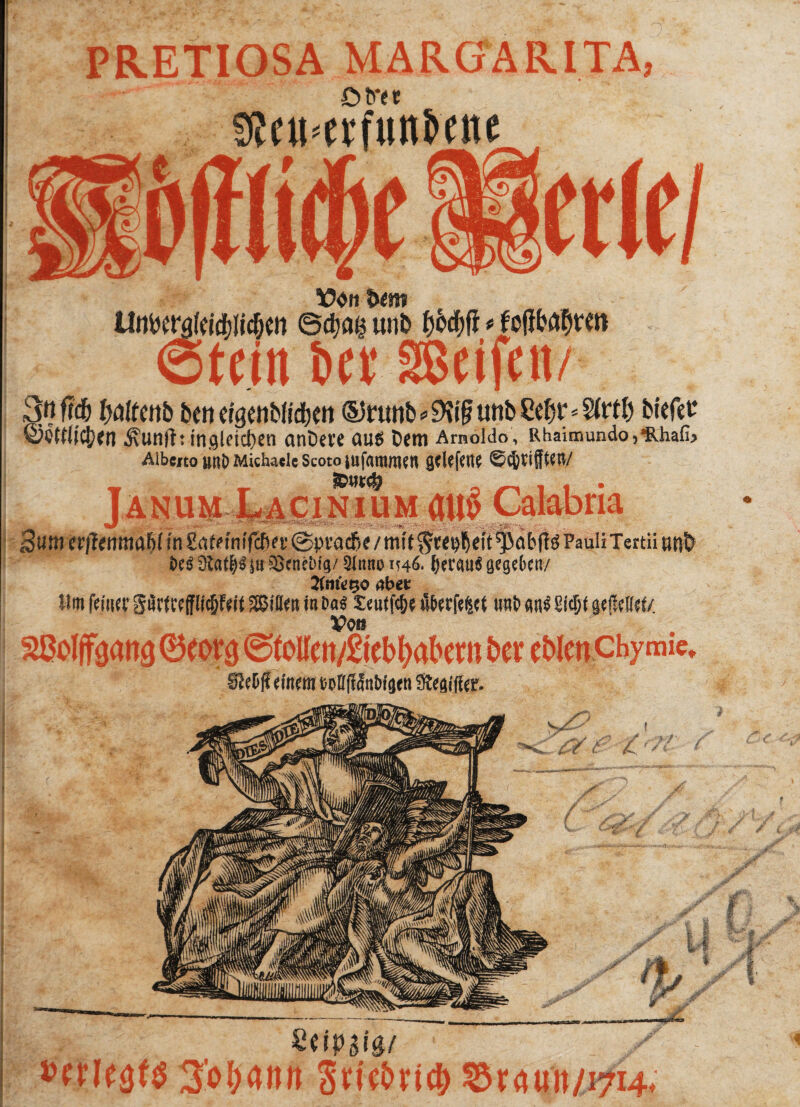 PRETIOSA MARGARITA,
Oder
Neu-erfundene
Köstliche Perle/
Von dem
Unvergleichlichen Schatz und höchst-kostbahren
Stein der Weisen/
In sich haltend den eigendlichen Grund-Riß und Lehr-Arth dieser
Göttlichen Kunst: ingleichen andere aus dem Arnoldo, Rhaimundo, Rhasi,
Alberto und Michaele Scoto zusammen gelesene Schrifften/
Durch
JANUM LACINIUM aus Calabria
Zum erstenmahl in Lateinischer Sprache / mit Freyheit Pabsts Pauli Tertii und
des Raths zu Venedig/ Anno 1546. heraus gegeben/
Anietzo aber
Um seiner Fürtrefflichkeit Willen in das Teutsche übersetzet und ans Licht gestellet/
Von
Wolffgang Georg Stollen/Liebhabern der edlen Chymie.
Nebst einem vollständigen Register.
DIES DIEM DOCET
Lacini aus
Calabria
Leipzig/
verlegts Johann Friedrich Braun/1714.